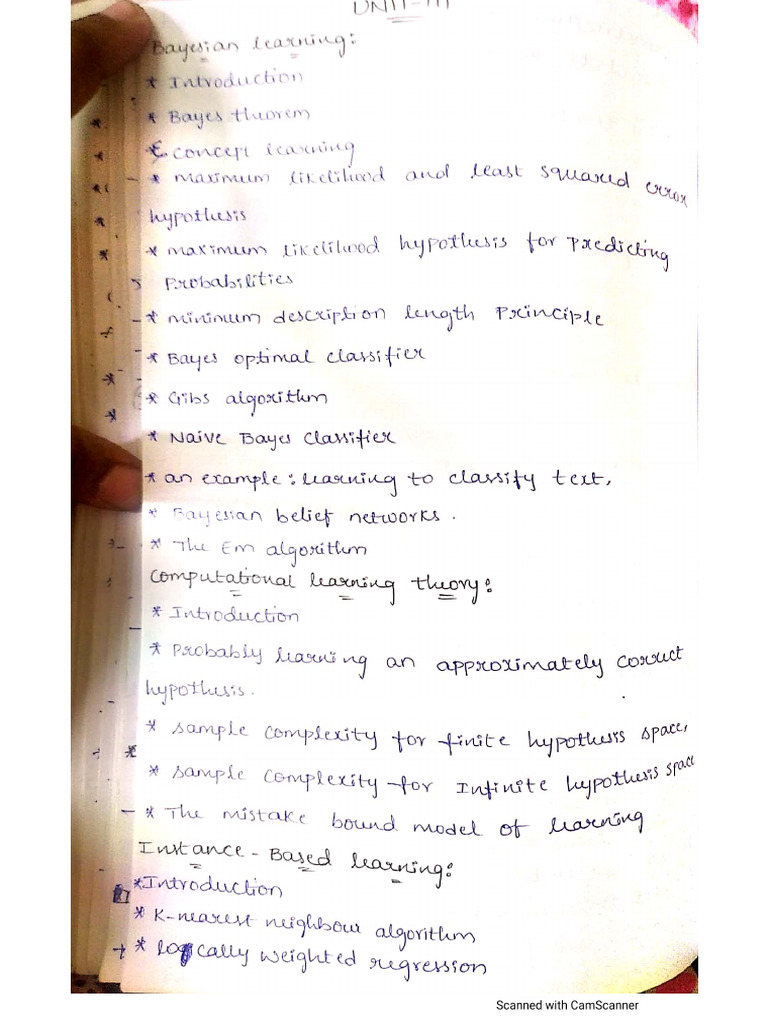 UNIT-III
Bayesian learning:
* Introduction
* Bayes theorem
* concept learning
- * maximum likelihood and least squared error
hypothesis
* maximum likelihood hypothesis for predicting
Probabilities
- * minimum description length Principle
* Bayes optimal classifier
* Gibs algorithm
* Naive Bayes Classifier
* an example: learning to classify text,
* Bayesian belief networks.
* The Em algorithm
Computational learning theory:
* Introduction
* Probably learning an approximately correct
hypothesis.
* sample complexity for finite hypothesis space,
* sample complexity for Infinite hypothesis space
- * The mistake bound model of learning
Instance-Based learning:
* Introduction
* K-nearest neighbour algorithm
+ * logcally weighted regression
Scanned with CamScanner